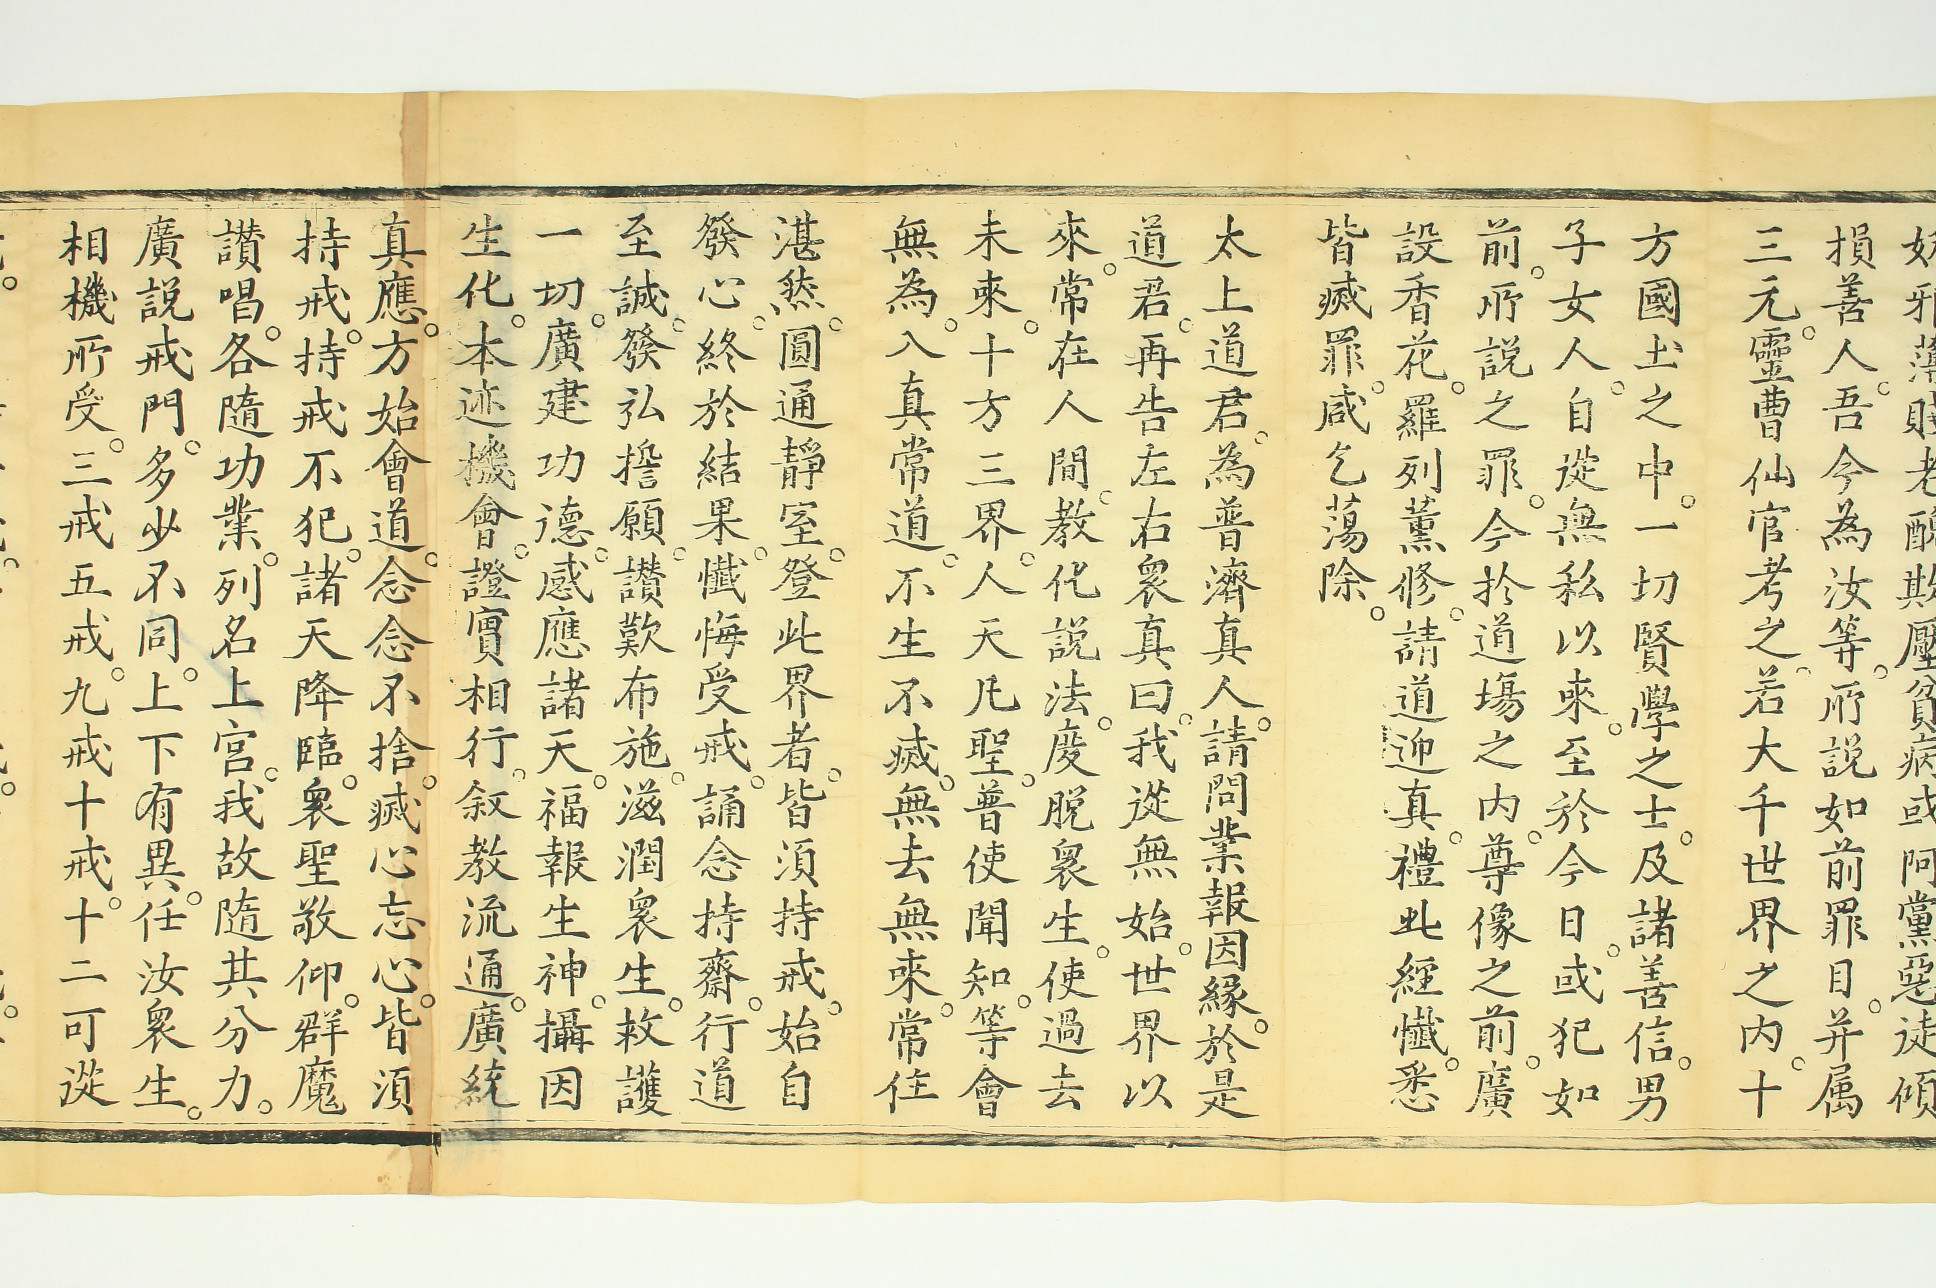 邪薄賤老醜欺壓貧病或阿黨惡徒傾
損善人。吾今為汝等。所説如前罪目。并属
三元。靈曹仙官考之。若大千世界之内。十
方國土之中。一切賢學之士。及諸善信。男
子女人。自從無私以來。至於今日。或犯如
前。所説之罪。今於道場之内。尊像之前。廣
設香花。羅列薰修。請道迎真。禮此經懺。悉
皆滅罪。咸乞蕩除。
太上道君。為普濟真人。請問業報因緣。於是
道君。再告左右衆真曰。我從無始。世界以
來。常在人間。教化説法。度脱衆生。使過去
未來。十方三界。人天凡聖。普使聞知。等會
無為。入真常道。不生不滅。無去無來。常住
湛然。圓通靜室。登此界者。皆須持戒。始自
發心。終於結果。懺悔受戒。誦念持齋。行道
至誠。發弘擔願。讚歎布施。滋潤衆生。救護
一切。廣建功德。感應諸天。福報生神。攝因
生化。本迹機會。證實相行。叙教流通。廣統
真應。方始會道。念念不捨。滅心忘心。皆須
持戒。持戒不犯。諸天降臨。衆聖敬仰。群魔
讚唱。各隨功業。列名上宮。我故隨其分力。
廣説戒門。多少不同。上下有異。任汝衆生。
相機所受。三戒五戒。九戒十戒。十二可從